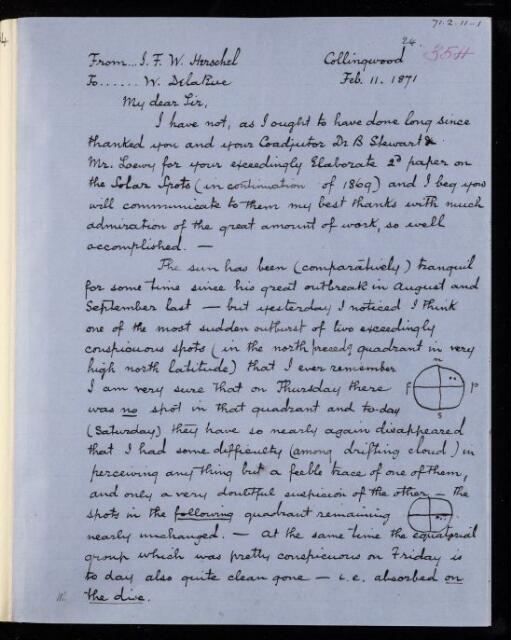 71.2.11-1
24.
354
From... J. F. W. Herschel Collingwood
To...... W. DelaRue Feb. 11. 1871
My dear Sir,
I have not, as I ought to have done long since
thanked you and your Coadjutor Dr B Stewart &
Mr. Loewy for your exceedingly Elaborate 2d paper on
the Solar Spots (in continuation of 1869) and I beg you
will communicate to them my best thanks with much
admiration of the great amount of work, so well
accomplished. —
The sun has been (comparatively) tranquil
for some time since his great outbreak in August and
September last — but yesterday I noticed I think
one of the most sudden outburst of two exceedingly
conspicuous spots (in the north preced.g quadrant in very
high north latitude) that I ever remember
I am very sure that on Thursday there
was no spot in that quadrant and to-day
(Saturday) they have so nearly again disappeared
that I had some difficulty (among drifting cloud) in
perceiving any thing but a feeble trace of one of them,
and only a very doubtful suspicion of the other — the
spots in the following quadrant remaining
nearly unchanged. — At the same time the equatorial
group which was pretty conspicuous on Friday is
to day also quite clean gone — i.e. absorbed on
the disc.
n
f p
s